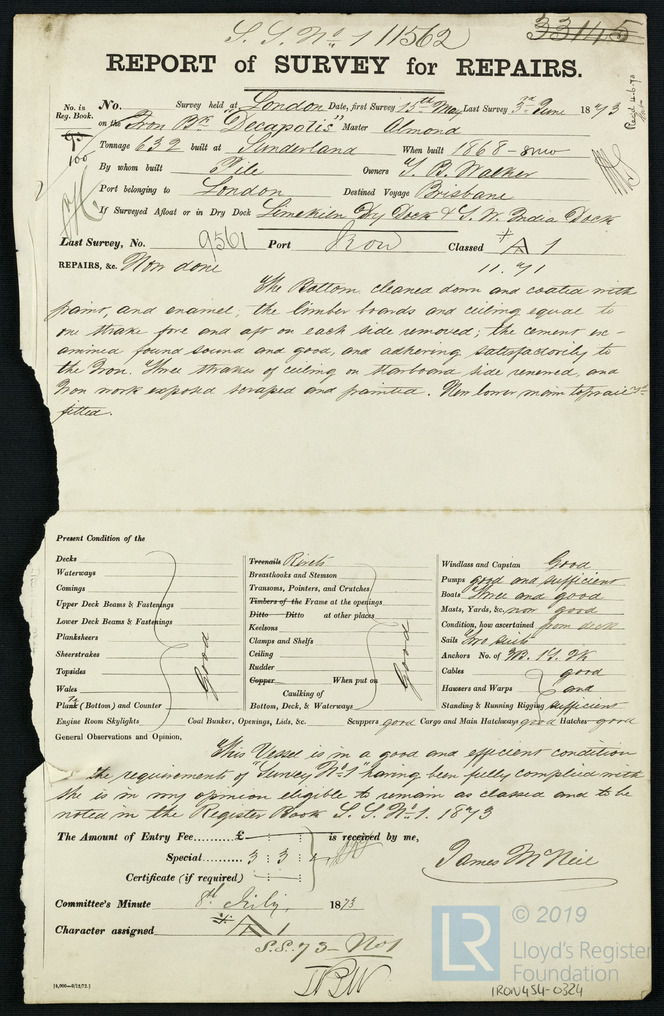 S. S. No 1 11562
33145
REPORT of SURVEY for REPAIRS.
Recd 4-6-73
No. in Reg. Book.
No. Survey held at London Date, first Survey 15th May Last Survey 3rd June 1873
on the Iron Bk "Decapolis" Master Almond
Tonnage 632 built at Sunderland When built 1868 - 8
By whom built Pile Owners T. B. Walker
Port belonging to London Destined Voyage Brisbane
If Surveyed Afloat or in Dry Dock Limekiln Dy Dock & S. W. India Dock
Last Survey, No. 9561 Port Lon Classed A 1
11. 71
REPAIRS, &c. Now done
The Bottom cleaned down and coated with
paint, and enamel; the limber boards and ceiling equal to
one strake fore and aft on each side removed; the cement ex-
amined found sound and good, and adhering satisfactorily to
the Iron. Three strakes of ceiling on starboard side renewed, and
Iron work exposed scraped and painted. New lower main topsail yd
fitted.
Present Condition of the
Decks
Waterways
Comings
Upper Deck Beams & Fastenings
Lower Deck Beams & Fastenings
Planksheers
Sheerstrakes
Topsides
Wales
Plank (Bottom) and Counter
Good
Engine Room Skylights
Treenails Rivets
Breasthooks and Stemson
Transoms, Pointers, and Crutches
Timbers of the Frame at the openings
Ditto Ditto at other places
Keelsons
Clamps and Shelfs
Ceiling
Rudder
Copper When put on
Caulking of
Bottom, Deck, & Waterways
Good
Windlass and Capstan Good
Pumps good and sufficient
Boats Three and good
Masts, Yards, &c. now good
Condition, how ascertained from deck
Sails Two suits
Anchors No. of 3B. 1S. 2K
Cables good
Hawsers and Warps and
Standing & Running Rigging sufficient
Coal Bunker, Openings, Lids, &c. Scuppers good Cargo and Main Hatchways good Hatches good
General Observations and Opinion,
This Vessel is in a good and efficient condition
the requirements of "Survey No. 1" having been fully complied with
she is in my opinion eligible to remain as classed and to be
noted in the Register Book S. S. No. 1. 1873
The Amount of Entry Fee.......... £ is received by me,
Special.......... 3 : 3 :
Certificate (if required) : :
James McNeil
Committee's Minute 8th July, 1873
Character assigned A 1
S.S. 73 - No 1
[4,000—9/12/72.]
LR © 2019
Lloyd's Register
Foundation
IRON454-0324